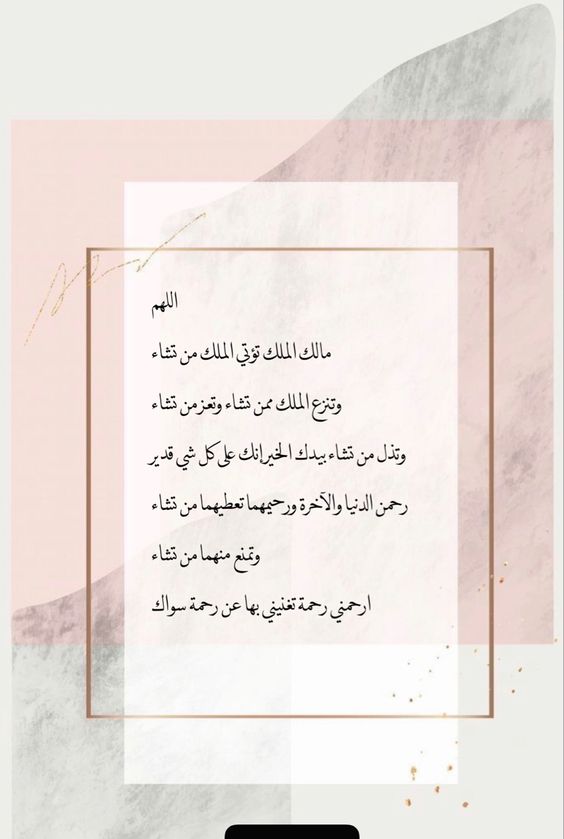 اللهم
مالك الملك تؤتي الملك من تشاء
وتنزع الملك ممن تشاء وتعز من تشاء
وتذل من تشاء بيدك الخير إنك على كل شي قدير
رحمن الدنيا والآخرة ورحيمهما تعطيهما من تشاء
وتمنع منهما من تشاء
ارحمني رحمة تغنيني بها عن رحمة سواك